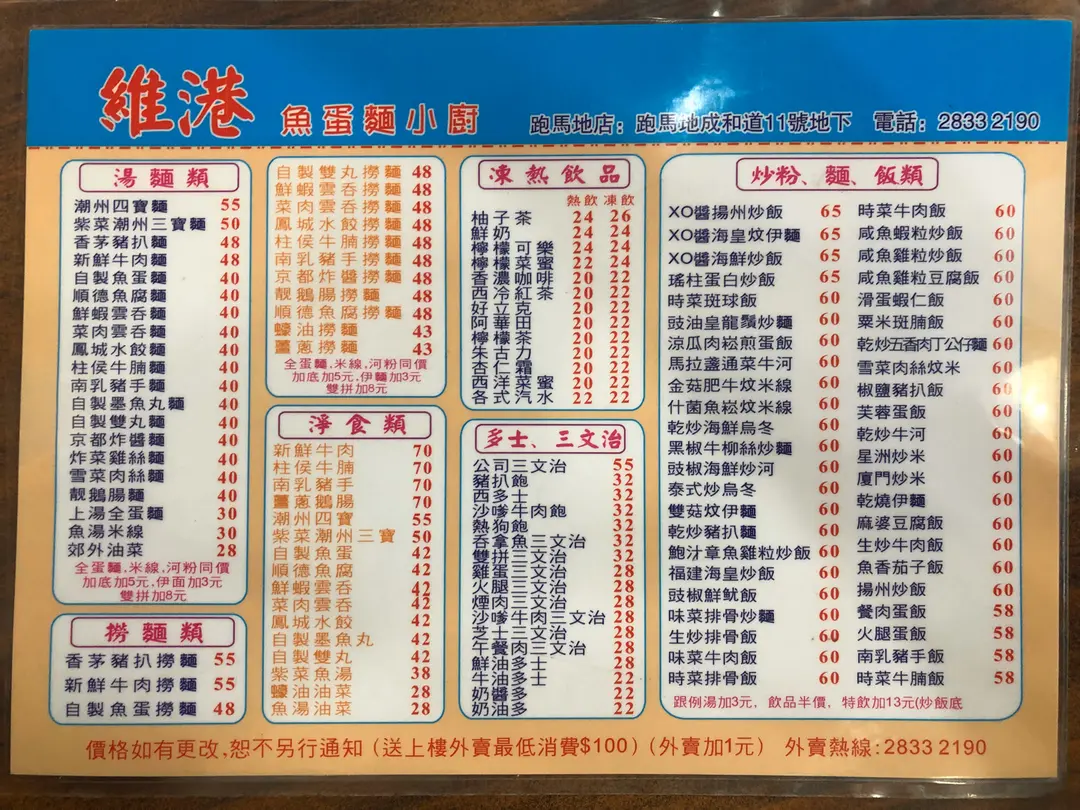 維港 魚蛋麵小廚 跑馬地店：跑馬地成和道11號地下 電話：2833 2190
湯麵類
潮州四寶麵 55
紫菜潮州三寶麵 50
香茅豬扒麵 48
新鮮牛肉麵 48
自製魚蛋麵 40
順德魚腐麵 40
鮮蝦雲吞麵 40
菜肉雲吞麵 40
鳳城水餃麵 40
柱侯牛腩麵 40
南乳豬手麵 40
自製墨魚丸麵 40
自製雙丸麵 40
京都炸醬麵 40
炸菜雞絲麵 40
雪菜肉絲麵 40
靚鵝腸麵 40
上湯全蛋麵 30
魚湯米線 30
郊外油菜 28
全蛋麵.米線.河粉同價
加底加5元,伊面加3元
雙拼加8元
撈麵類
香茅豬扒撈麵 55
新鮮牛肉撈麵 55
自製魚蛋撈麵 48
自製雙丸撈麵 48
鮮蝦雲吞撈麵 48
菜肉雲吞撈麵 48
鳳城水餃撈麵 48
柱侯牛腩撈麵 48
南乳豬手撈麵 48
京都炸醬撈麵 48
靚鵝腸撈麵 48
順德魚腐撈麵 48
蠔油撈麵 43
薑蔥撈麵 43
全蛋麵.米線.河粉同價
加底加5元,伊麵加3元
雙拼加8元
淨食類
新鮮牛肉 70
柱侯牛腩 70
南乳豬手 70
薑蔥鵝腸 70
潮州四寶 55
紫菜潮州三寶 50
自製魚蛋 42
順德魚腐 42
鮮蝦雲吞 42
菜肉雲吞 42
鳳城水餃 42
自製墨魚丸 42
自製雙丸 42
紫菜魚湯 38
蠔油油菜 28
魚湯油菜 28
凍熱飲品
熱飲 凍飲
柚子茶 24 26
鮮奶 24 24
檸檬可樂 24 24
檸檬菜蜜 22 24
香濃咖啡 20 22
西冷紅茶 20 22
好立克 20 22
阿華田 20 22
檸檬茶 20 22
朱古力 20 22
杏仁霜 20 22
西洋菜蜜 20 22
各式汽水 22 22
多士、三文治
公司三文治 55
豬扒飽 32
西多士 32
沙嗲牛肉飽 32
熱狗飽 32
吞拿魚三文治 32
雙拼三文治 32
雞蛋三文治 28
火腿三文治 28
煙肉三文治 28
沙嗲牛肉三文治 28
芝士三文治 28
午餐肉三文治 28
鮮油多士 28
牛油多士 22
奶醬多 22
奶油多 22
炒粉、麵、飯類
XO醬揚州炒飯 65
XO醬海皇炆伊麵 65
XO醬海鮮炒飯 65
瑤柱蛋白炒飯 65
時菜斑球飯 60
豉油皇龍鬚炒麵 60
涼瓜肉崧煎蛋飯 60
馬拉盞通菜牛河 60
金菇肥牛炆米線 60
什菌魚崧炆米線 60
乾炒海鮮烏冬 60
黑椒牛柳絲炒麵 60
豉椒海鮮炒河 60
泰式炒烏冬 60
雙菇炆伊麵 60
乾炒豬扒麵 60
鮑汁章魚雞粒炒飯 60
福建海皇炒飯 60
豉椒鮮魷飯 60
味菜排骨炒麵 60
生炒排骨飯 60
味菜牛肉飯 60
時菜排骨飯 60
時菜牛肉飯 60
咸魚蝦粒炒飯 60
咸魚雞粒炒飯 60
咸魚雞粒豆腐飯 60
滑蛋蝦仁飯 60
粟米斑腩飯 60
乾炒五香肉丁公仔麵 60
雪菜肉絲炆米 60
椒鹽豬扒飯 60
芙蓉蛋飯 60
乾炒牛河 60
星洲炒米 60
廈門炒米 60
乾燒伊麵 60
麻婆豆腐飯 60
生炒牛肉飯 60
魚香茄子飯 60
揚州炒飯 60
餐肉蛋飯 58
火腿蛋飯 58
南乳豬手飯 58
時菜牛腩飯 58
跟例湯加3元，飲品半價，特飲加13元(炒飯底
價格如有更改,恕不另行通知（送上樓外賣最低消費$100）（外賣加1元） 外賣熱線:2833 2190